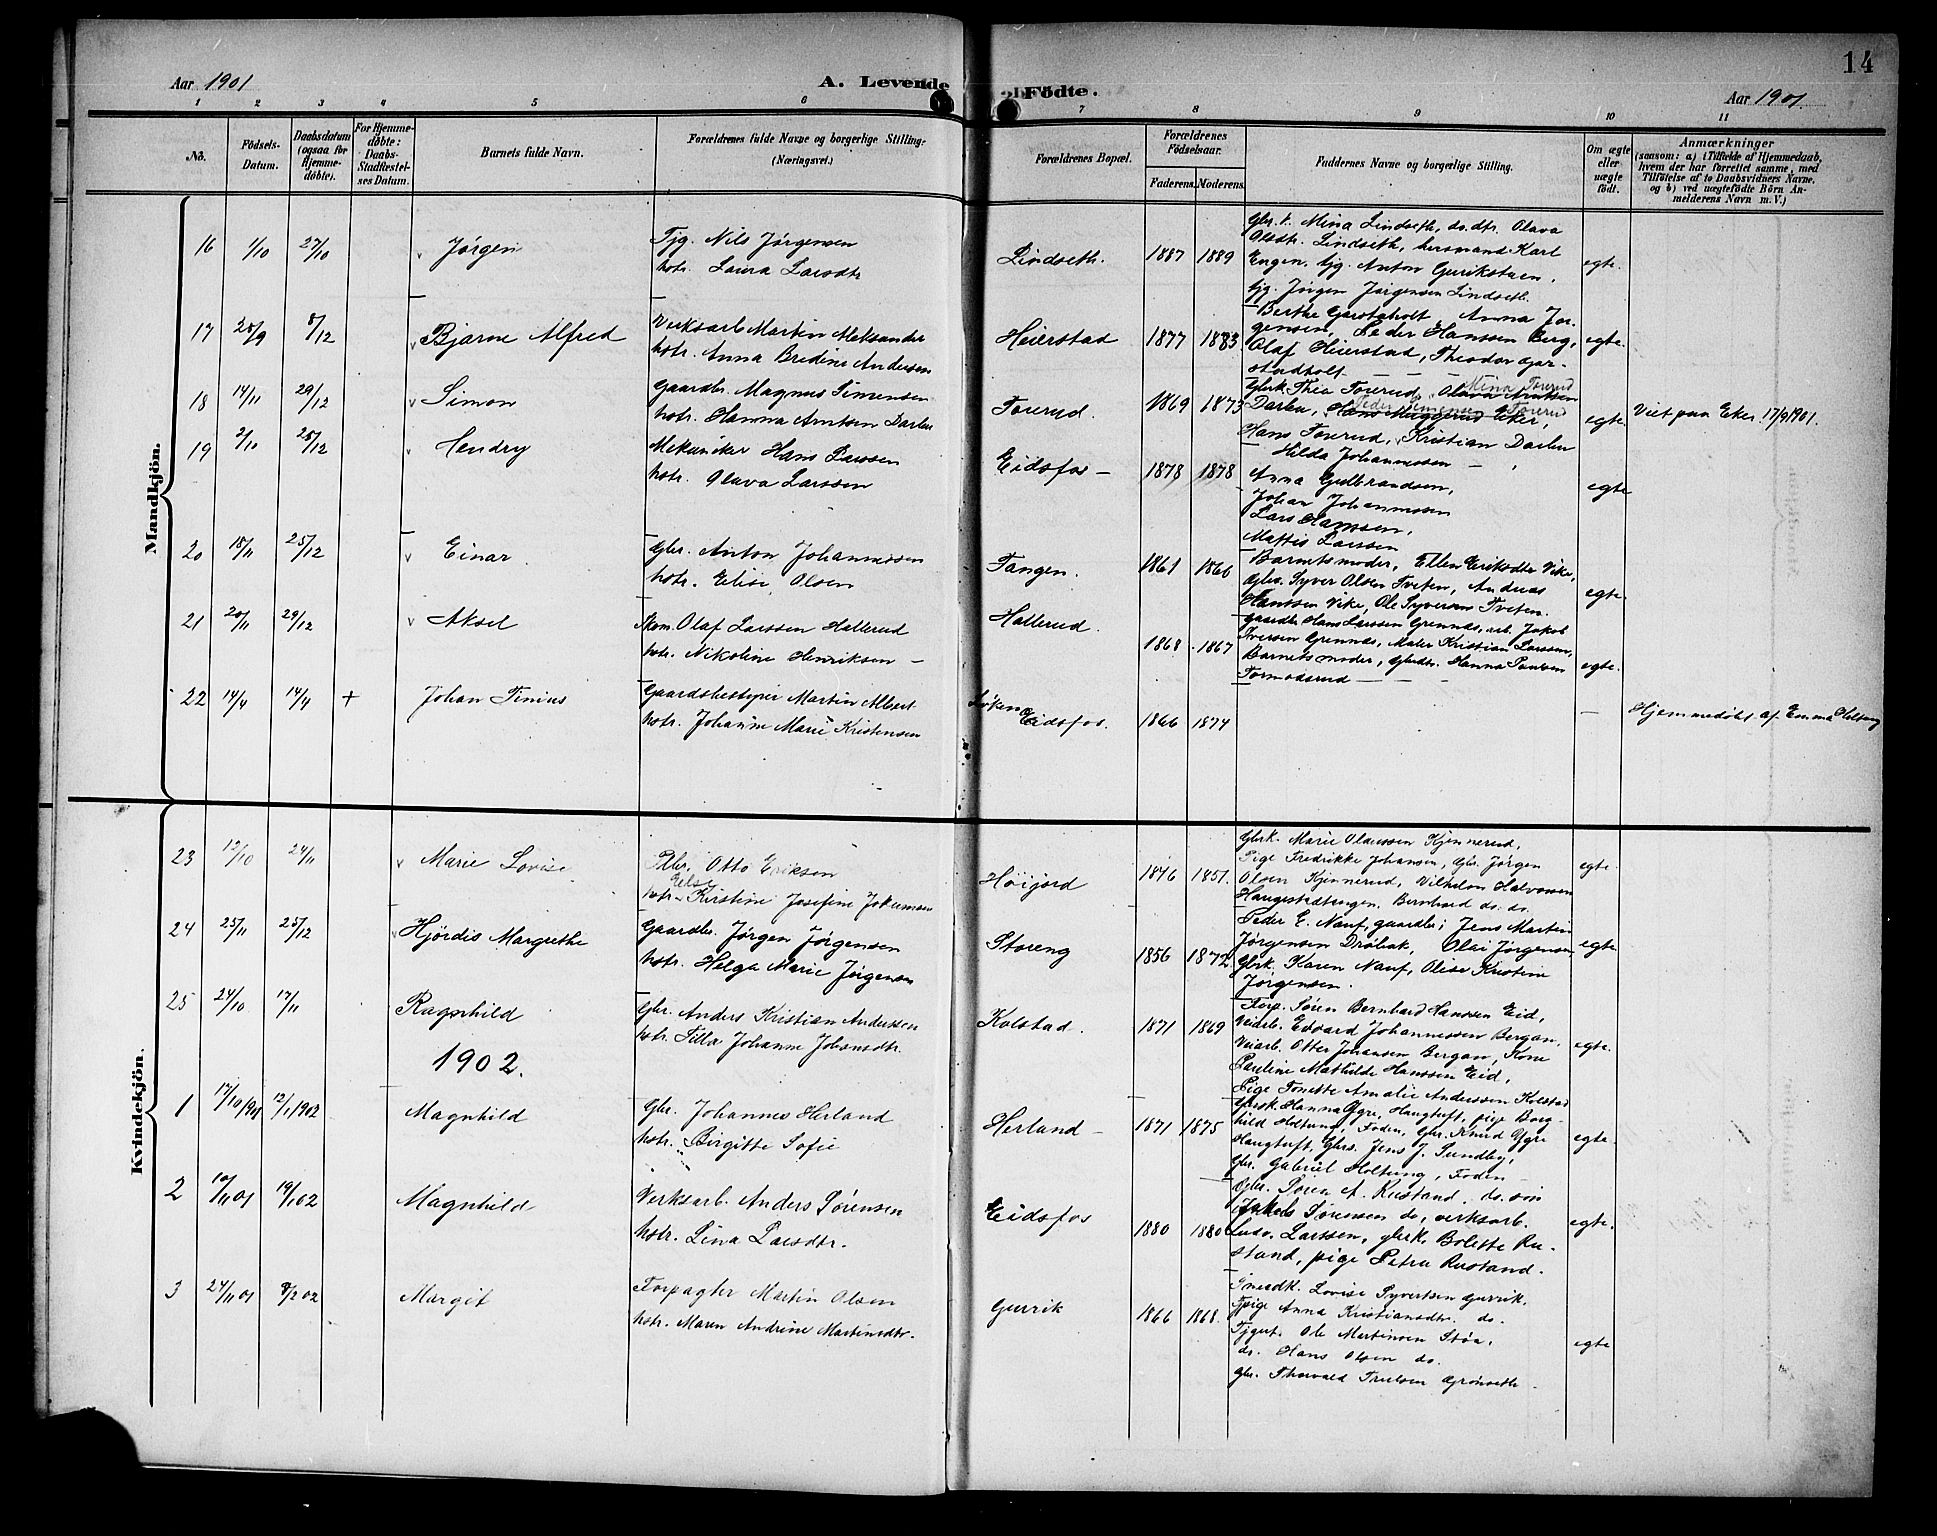 14
Aar 1901
A. Levende Fødte.
Aar 1901.
1 2 3 4 5 6 7 8 9 10 11
No.
Födsels-Datum.
Daabsdatum (ogsaa for Hjemme-döbte).
For Hjemme-döbte: Daabs-Stadfæstel-ses Datum.
Barnets fulde Navn.
Forældrenes fulde Navne og borgerlige Stilling (Næringsvei.)
Forældrenes Bopæl.
Forældrenes Födselsaar.
Faderens. Moderens.
Faddernes Navne og borgerlige Stilling.
Om ægte eller uægte födt.
Anmærkninger
(saasom: a) i Tilfælde af Hjemmedaab,
hvem der har forrettet samme, med
Tilföielse af to Daabsvidners Navne,
og b) ved uægtefödte Börn An-
melderens Navn m. V.)
Mandkjön.
16 1/10 27/10 Jørgen
Tjg. Nils Jørgensen
hstr. Laura Larsdtr
Lindseth. 1887 1889
Gbr.k. Mina Lindseth, do.dtr. Olava
Olsdtr. Lindseth, husmand Karl
Engen, tjg. Anton Gurikstuen,
tjg. Jørgen Jørgensen Lindseth.
egte.
17 28/9 8/12 Bjarne Alfred
Verksarb. Martin Aleksander
hstr. Anna Bredine Andersen
Heierstad 1877 1883
Berthe Gerstaholt, Anna Jør-
gensen, Peder Hanssen Berg,
Olaf Heierstad, Theodor Gjer-
stadholt
egte.
18 14/11 29/12 Simon
Gaardbr. Magnus Simensen
hstr. Hanna Arntsen Darbu
Foserud. 1869 1873
Gbrk. Thea Foserud, Olava Arntsen
Mina Foserud
Darbu, Hans Muggerud Eker,
Peder Simensen Foserud
Hans Foserud, Kristian Darbu
egte. Viet paa Eker 17/9 1901.
19 2/10 25/12 Hendry
Mekaniker Hans Larssen
hstr. Olava Larssen
Eidsfos 1878 1878
Hilda Johannessen
Anna Gulbrandsen,
Johan Johannessen
Lars Hanssen,
Mattis Larssen
egte
20 18/11 25/12 Einar.
Gbr. Anton Johannessen
hstr. Elise Olsen
Tangen. 1861 1866
Barnets moder, Ellen Eriksdtr Vike,
Gbr. Syver Olsen Tveten, Andreas
Hanssen Vike, Ole Syversen Tveten.
egte.
21 20/11 29/12 Aksel
Skom. Olaf Larssen Hallerud
hstr. Nikoline Henriksen
Hallerud. 1868 1867
Gaardbr. Hans Larssen Grennes, arb. Jakob
Iversen Grennes, Maler Kristian Larssen,
Barnets moder, Gbrdtr. Hanna Paulsen
Tormodsrud
egte.
22 14/4 14/4 + Johan Tinius
Gaardsbestyrer Martin Albert Løken
hstr. Johanne Marie Kristensen
Eidsfos. 1866 1874
Hjemmedøbt af Emma Holtung
Kvindekjön.
23 12/10 24/11 Marie Lovise
Plbr. Otto Eriksen
hstr. Else Kirstine Josefine Jokumsen
Høijord 1846 1851.
Gbrk. Marie Olaussen Kjennerud,
Pige Fredrikke Johansen, Gbr. Jørgen
Olsen Kjennerud, Vilhelm Halvorsen
Haugestadtangen, Bernhard do. do.
egte.
24 25/11 25/12 Hjørdis Margrethe
Gaardbr. Jørgen Jørgensen
hstr. Helga Marie Jørgensen
Storeng 1856 1872
Peder E. Nauf, gaardbr; Jens Martin
Jørgensen Drøbak, Olai Jørgensen
Gbrk. Karen Nauf, Olise Kristine
Jørgensen.
egte
25 24/10 17/11 Ragnhild
Gbr. Anders Kristian Anderssen
hstr. Tilla Johanne Johansdtr.
Kolstad. 1871 1869
Forp. Søren Bernhard Hanssen Eid,
Veiarb. Edvard Johannessen Bergan,
Veiarb. Otter Johansen Bergan, Kone
Pauline Mathilde Hanssen Eid,
Pige Tonette Amalie Anderssen Kolstad
egte.
1902.
1 17/10 1901 12/1 1902 Magnhild
Gbr. Johannes Herland
hstr. Birgitte Sofie
Herland 1871 1875
Gbrsk. Hanna Ygre, Haugtuft, pige Borg-
hild Holtung, Foden, Gbr. Knud Ygre
Haugtuft, Gbrs. Jens J. Sundby,
Gbr. Gabriel Holtung, Foden
egte.
2 10/11 01 19/1 02 Magnhild
Verksarb. Anders Sørensen
hstr. Lina Larsdtr.
Eidsfos 1880 1880
Gbr. Søren A. Rustand, do. søn
Jakob Sørensen do, verksarb.
Ludv. Larssen, gbrk. Bolette Ru-
stand, pige Petra Rustand.
egte.
3 24/11 01 9/2 02 Margit
Forpagter Martin Olsen
hstr. Maren Andrine Martinsdtr.
Gurrik 1866 1868.
Smedk. Lovise Syvertsen Gurrik.
Tjpige Anna Kristiansdtr. do.
Tjgut. Ole Martinsen Støa,
do. Hans Olsen do.
Gbr. Thorvald Trulsen Grønseth.
egte